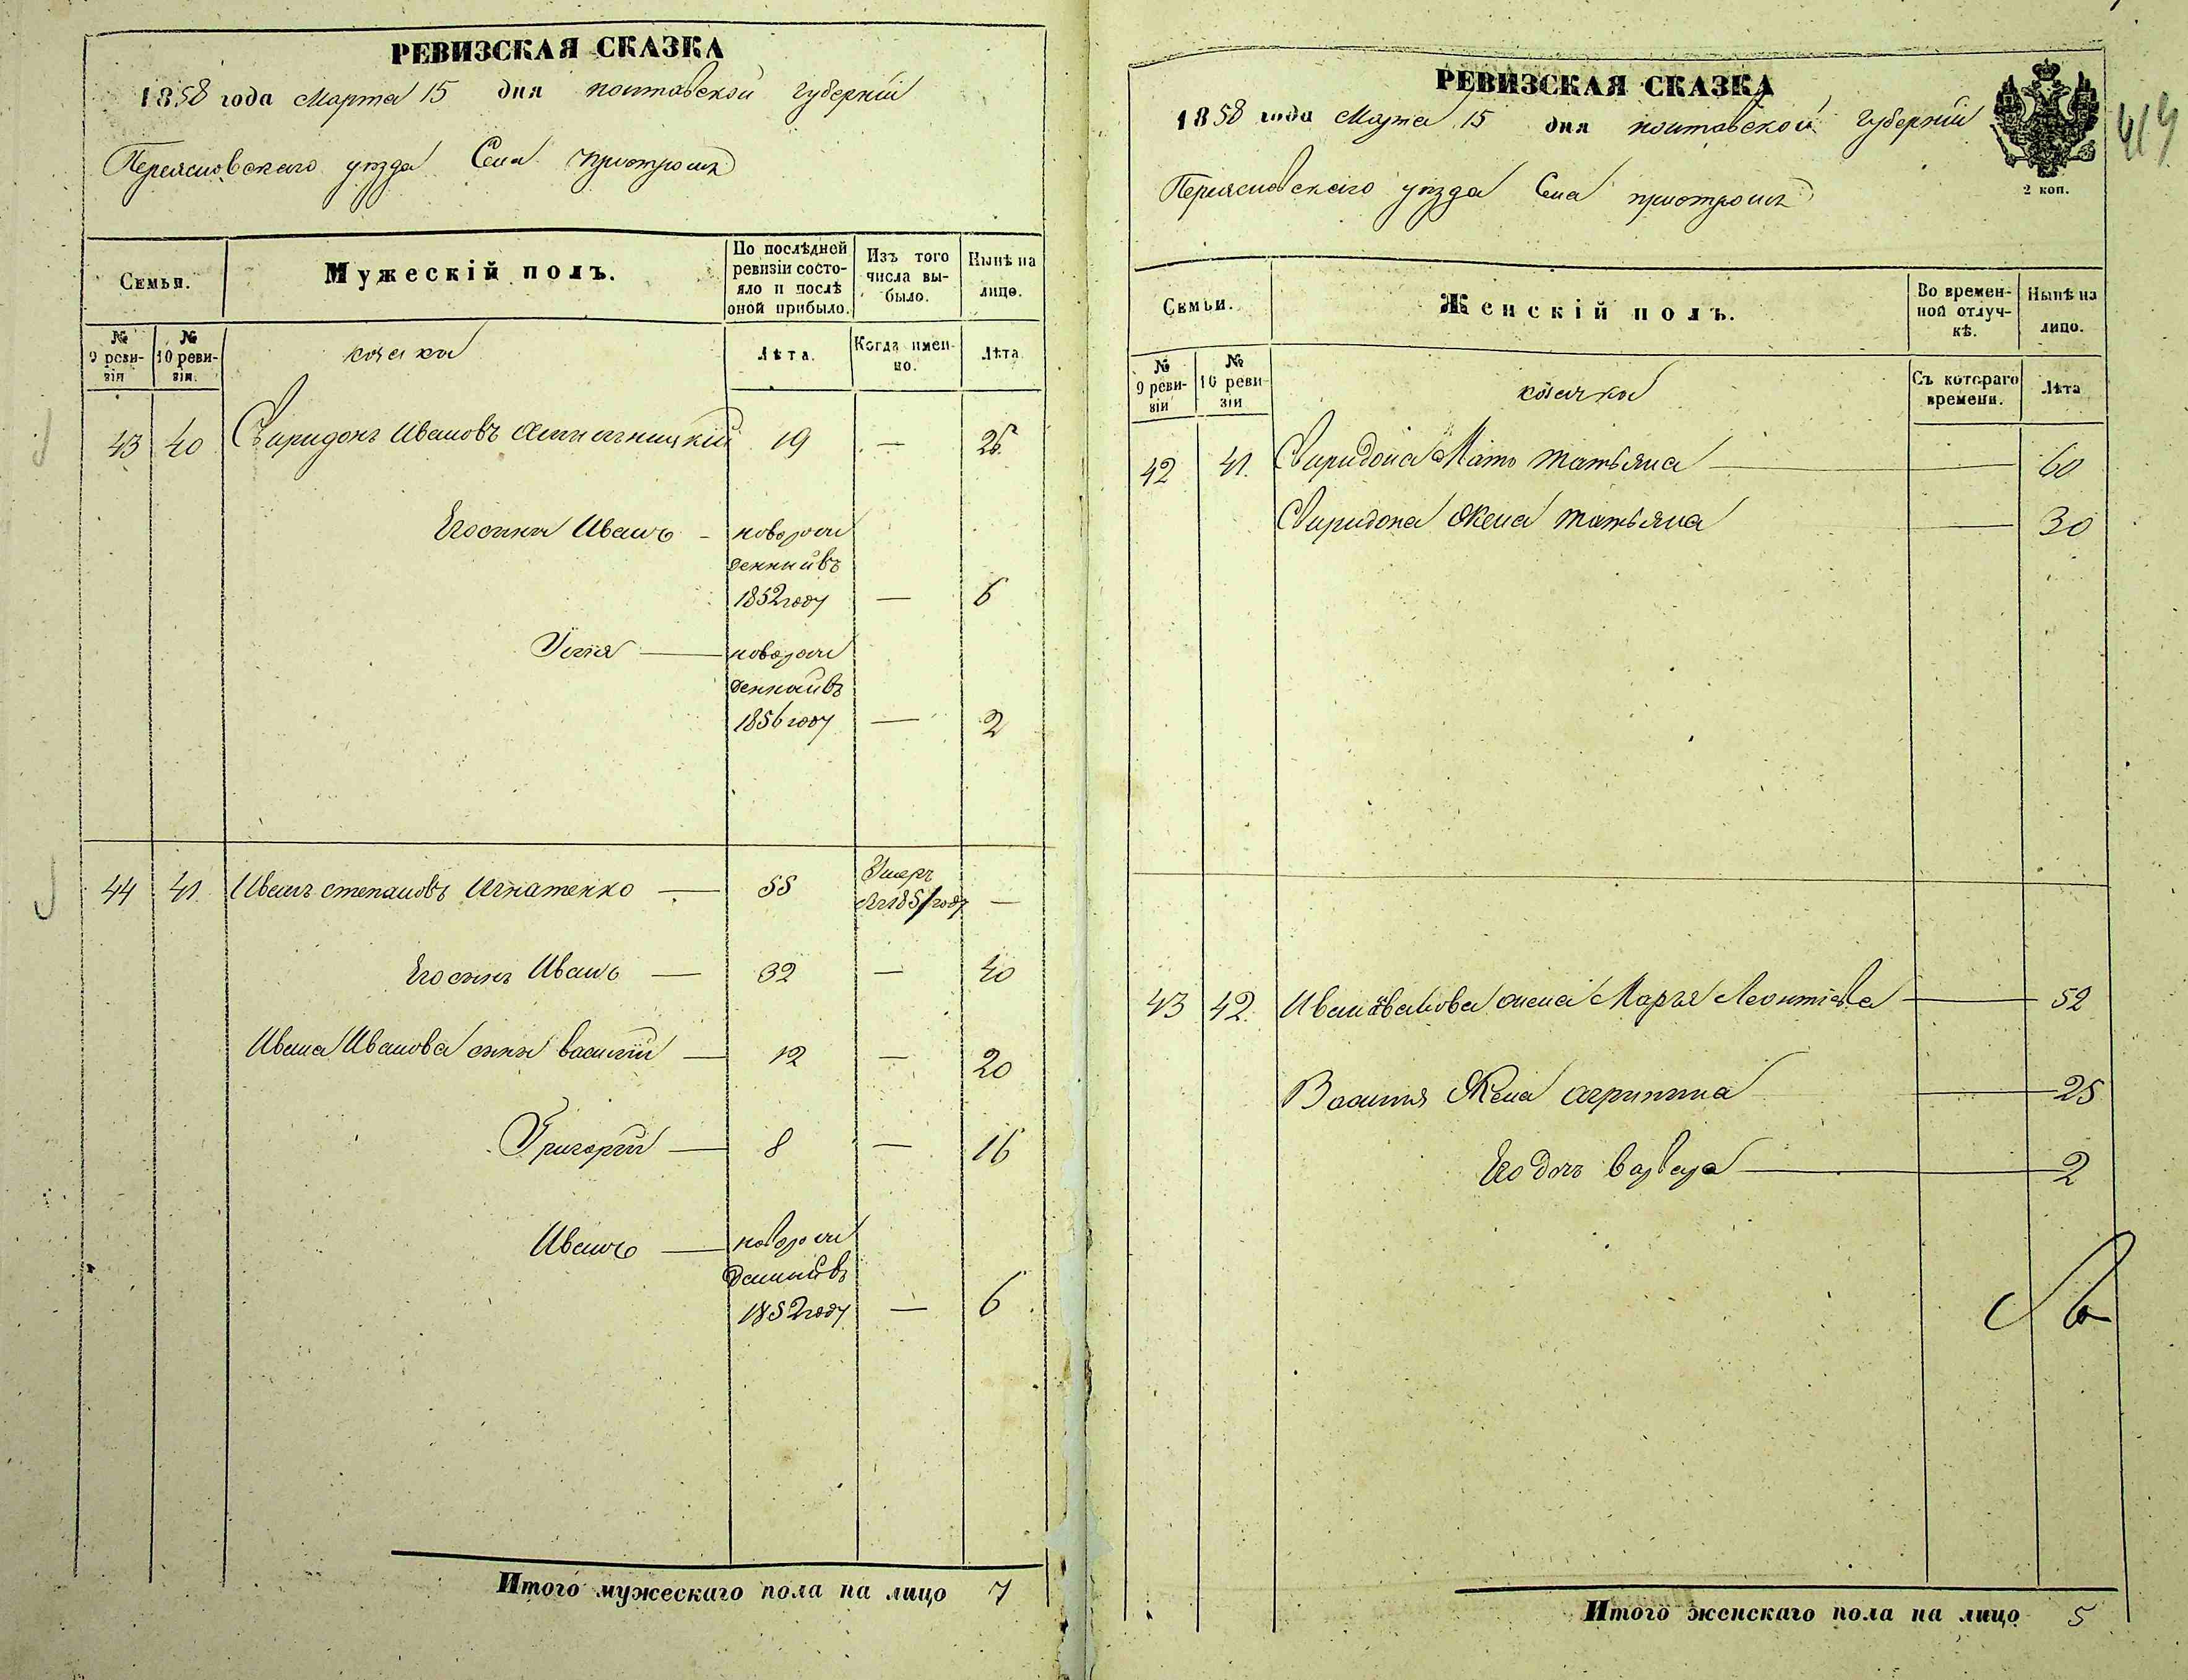 РЕВИЗСКАЯ СКАЗКА
1858 года Марта 15 дня полтавской губернiи
Переясловскаго уѣзда Села пристромъ
Семьи.
Мужескiй полъ.
По послѣдней ревизiи состояло и послѣ оной прибыло.
Изъ того числа выбыло.
Нынѣ на лицо.
№ 9 ревизiи
№ 10 ревизiи.
козаки
Лѣта.
Когда именно.
Лѣта
43 40 Свиридонъ Ивановъ 19 — 26
Его сины Иванъ - новорож
денный въ
1852 году — 6
Илiя — новорож
денный въ
1856 году — 2
44 41. Иванъ степановъ Игнатенко — 55 Умеръ
въ 1851 году —
Его синъ Иванъ — 32 — 40
Ивана Иванова сины василiй — 12 — 20
Григорiй — 8 — 16
Иванъ — новорож
денный въ
1852 году — 6
Итого мужескаго пола на лицо 7
РЕВИЗСКАЯ СКАЗКА
1858 года Марта 15 дня полтавской губернiи
Переясловскаго уѣзда Села пристромъ
2 коп.
419
Семьи.
Женскiй полъ.
Во временной отлучкѣ.
Нынѣ на лицо.
№ 9 ревизiи
№ 10 ревизiи
козачки
Съ котораго времени.
Лѣта
42 41. Свиридона Мать татьяна — 60
Свиридона жена татьяна — 30
43 42. Ивана Иванова жена Марья Леонтiева — 52
Василiя Жена агрипина — 25
Его дочь варвара — 2
Итого женскаго пола на лицо 5